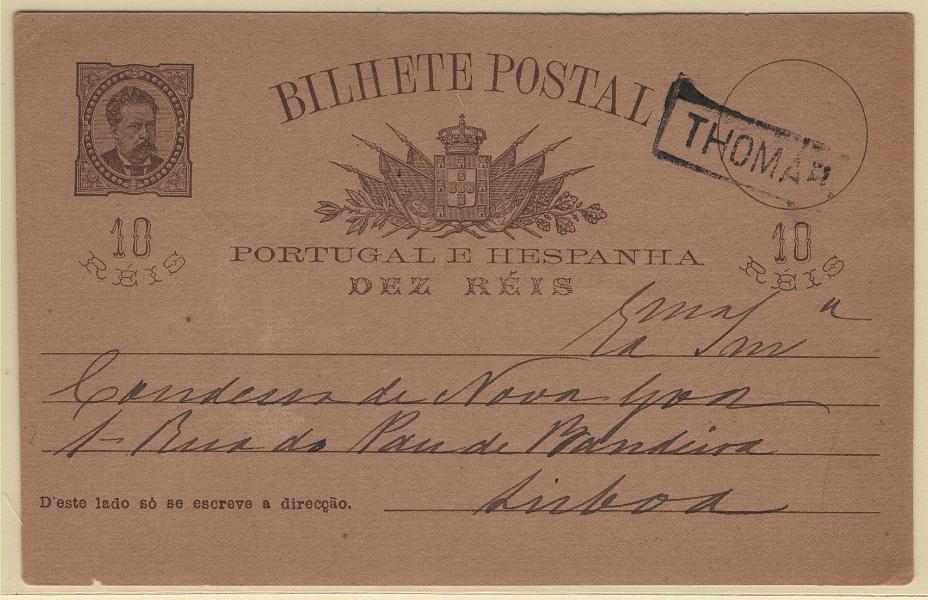 BILHETE POSTAL
THOMAR
10
RÉIS
10
RÉIS
PORTUGAL E HESPANHA
DEZ RÉIS
Condessa de Nova Goa
1- Rua do Pau de Bandeira
D'este lado só se escreve a direcção.
Lisboa